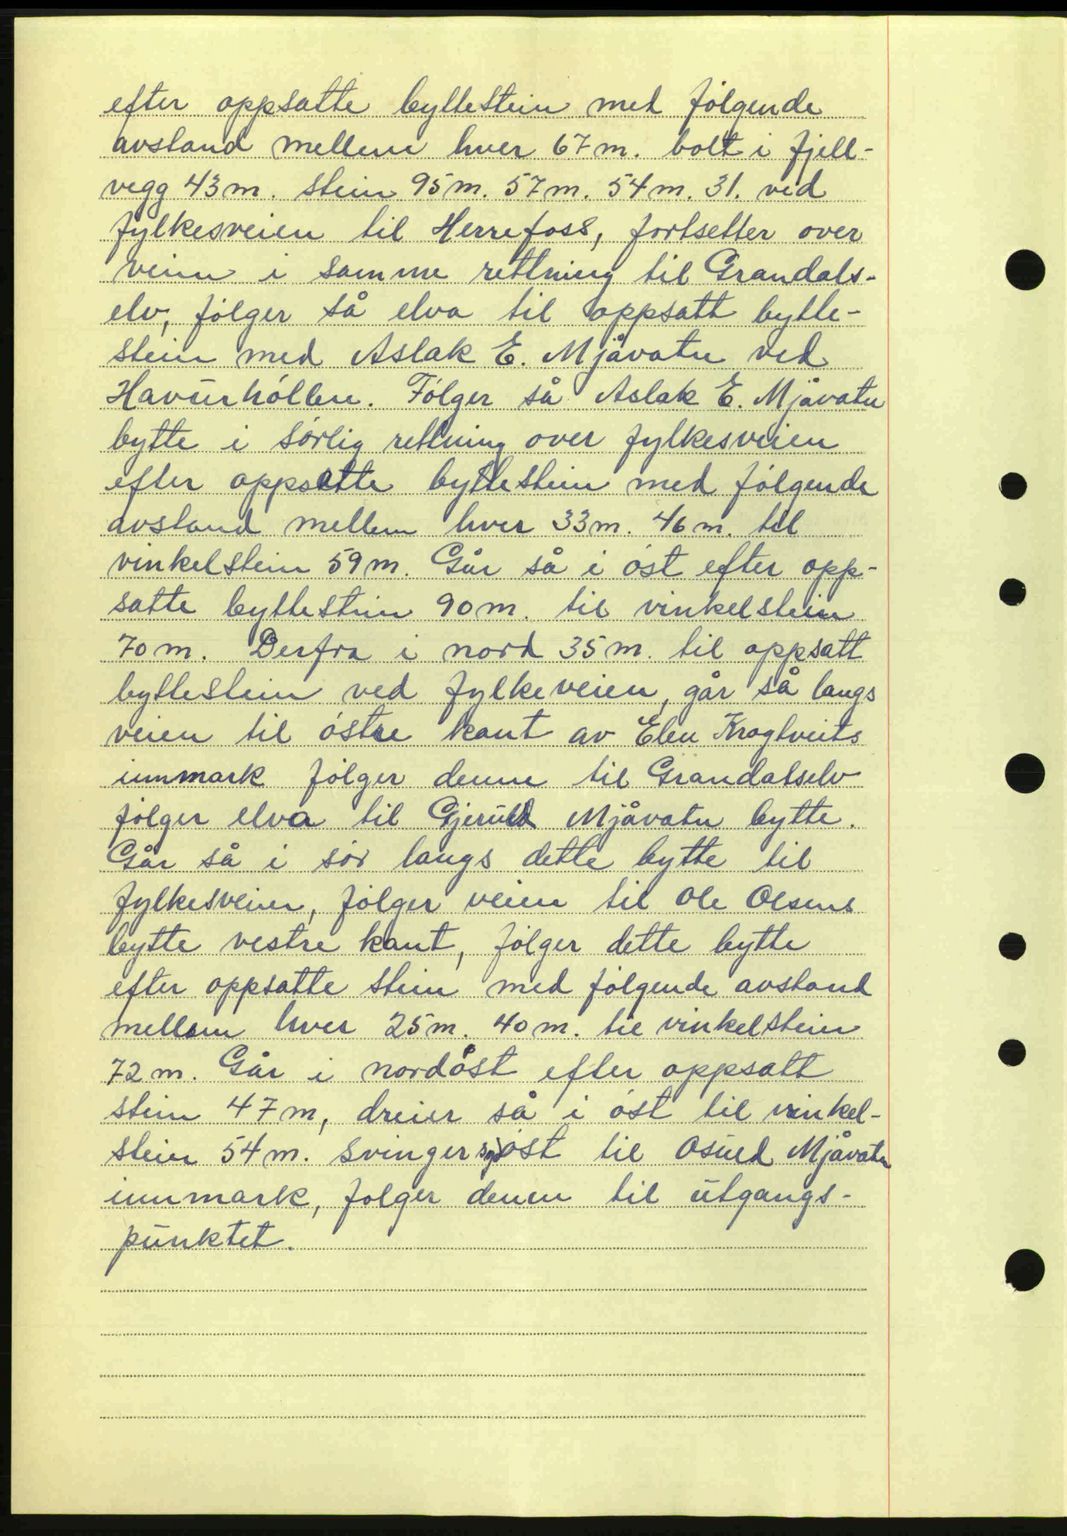 efter oppsatte byttestein med følgende
avstand mellem hver 67 m. bolt i fjell-
vegg 43 m. stein 95 m. 57 m. 54 m. 31. ved
fylkesveien til Herrefoss, fortsetter over
veien i samme rettning til Grandals-
elv, følger så elva til oppsatt bytte-
stein med Aslak E. Mjåvatn ved
Havurhøllen. Følger så Aslak E. Mjåvatn
bytte i sørlig rettning over fylkesveien
efter oppsatte byttestein med følgende
avstand mellem hver 33 m. 46 m. til
vinkelstein 59 m. Går så i øst efter opp-
satte byttestein 90 m. til vinkelstein
70 m. Derfra i nord 35 m. til oppsatt
byttestein ved fylkeveien, går så langs
veien til østre kant av Elen Krogtveits
innmark følger denne til Grandalselv
følger elva til Gjeruld Mjåvatn bytte.
Går så i sør langs dette bytte til
fylkesveien, følger veien til Ole Olsens
bytte vestre kant, følger dette bytte
efter oppsatte stein med følgende avstand
mellom hver 25 m. 40 m. til vinkelstein
72 m. Går i nordøst efter oppsatt
stein 47 m, dreier så i øst til vinkel-
stein 54 m. Svinger øst til Osuld Mjåvatn
innmark, følger denne til utgangs-
punktet.